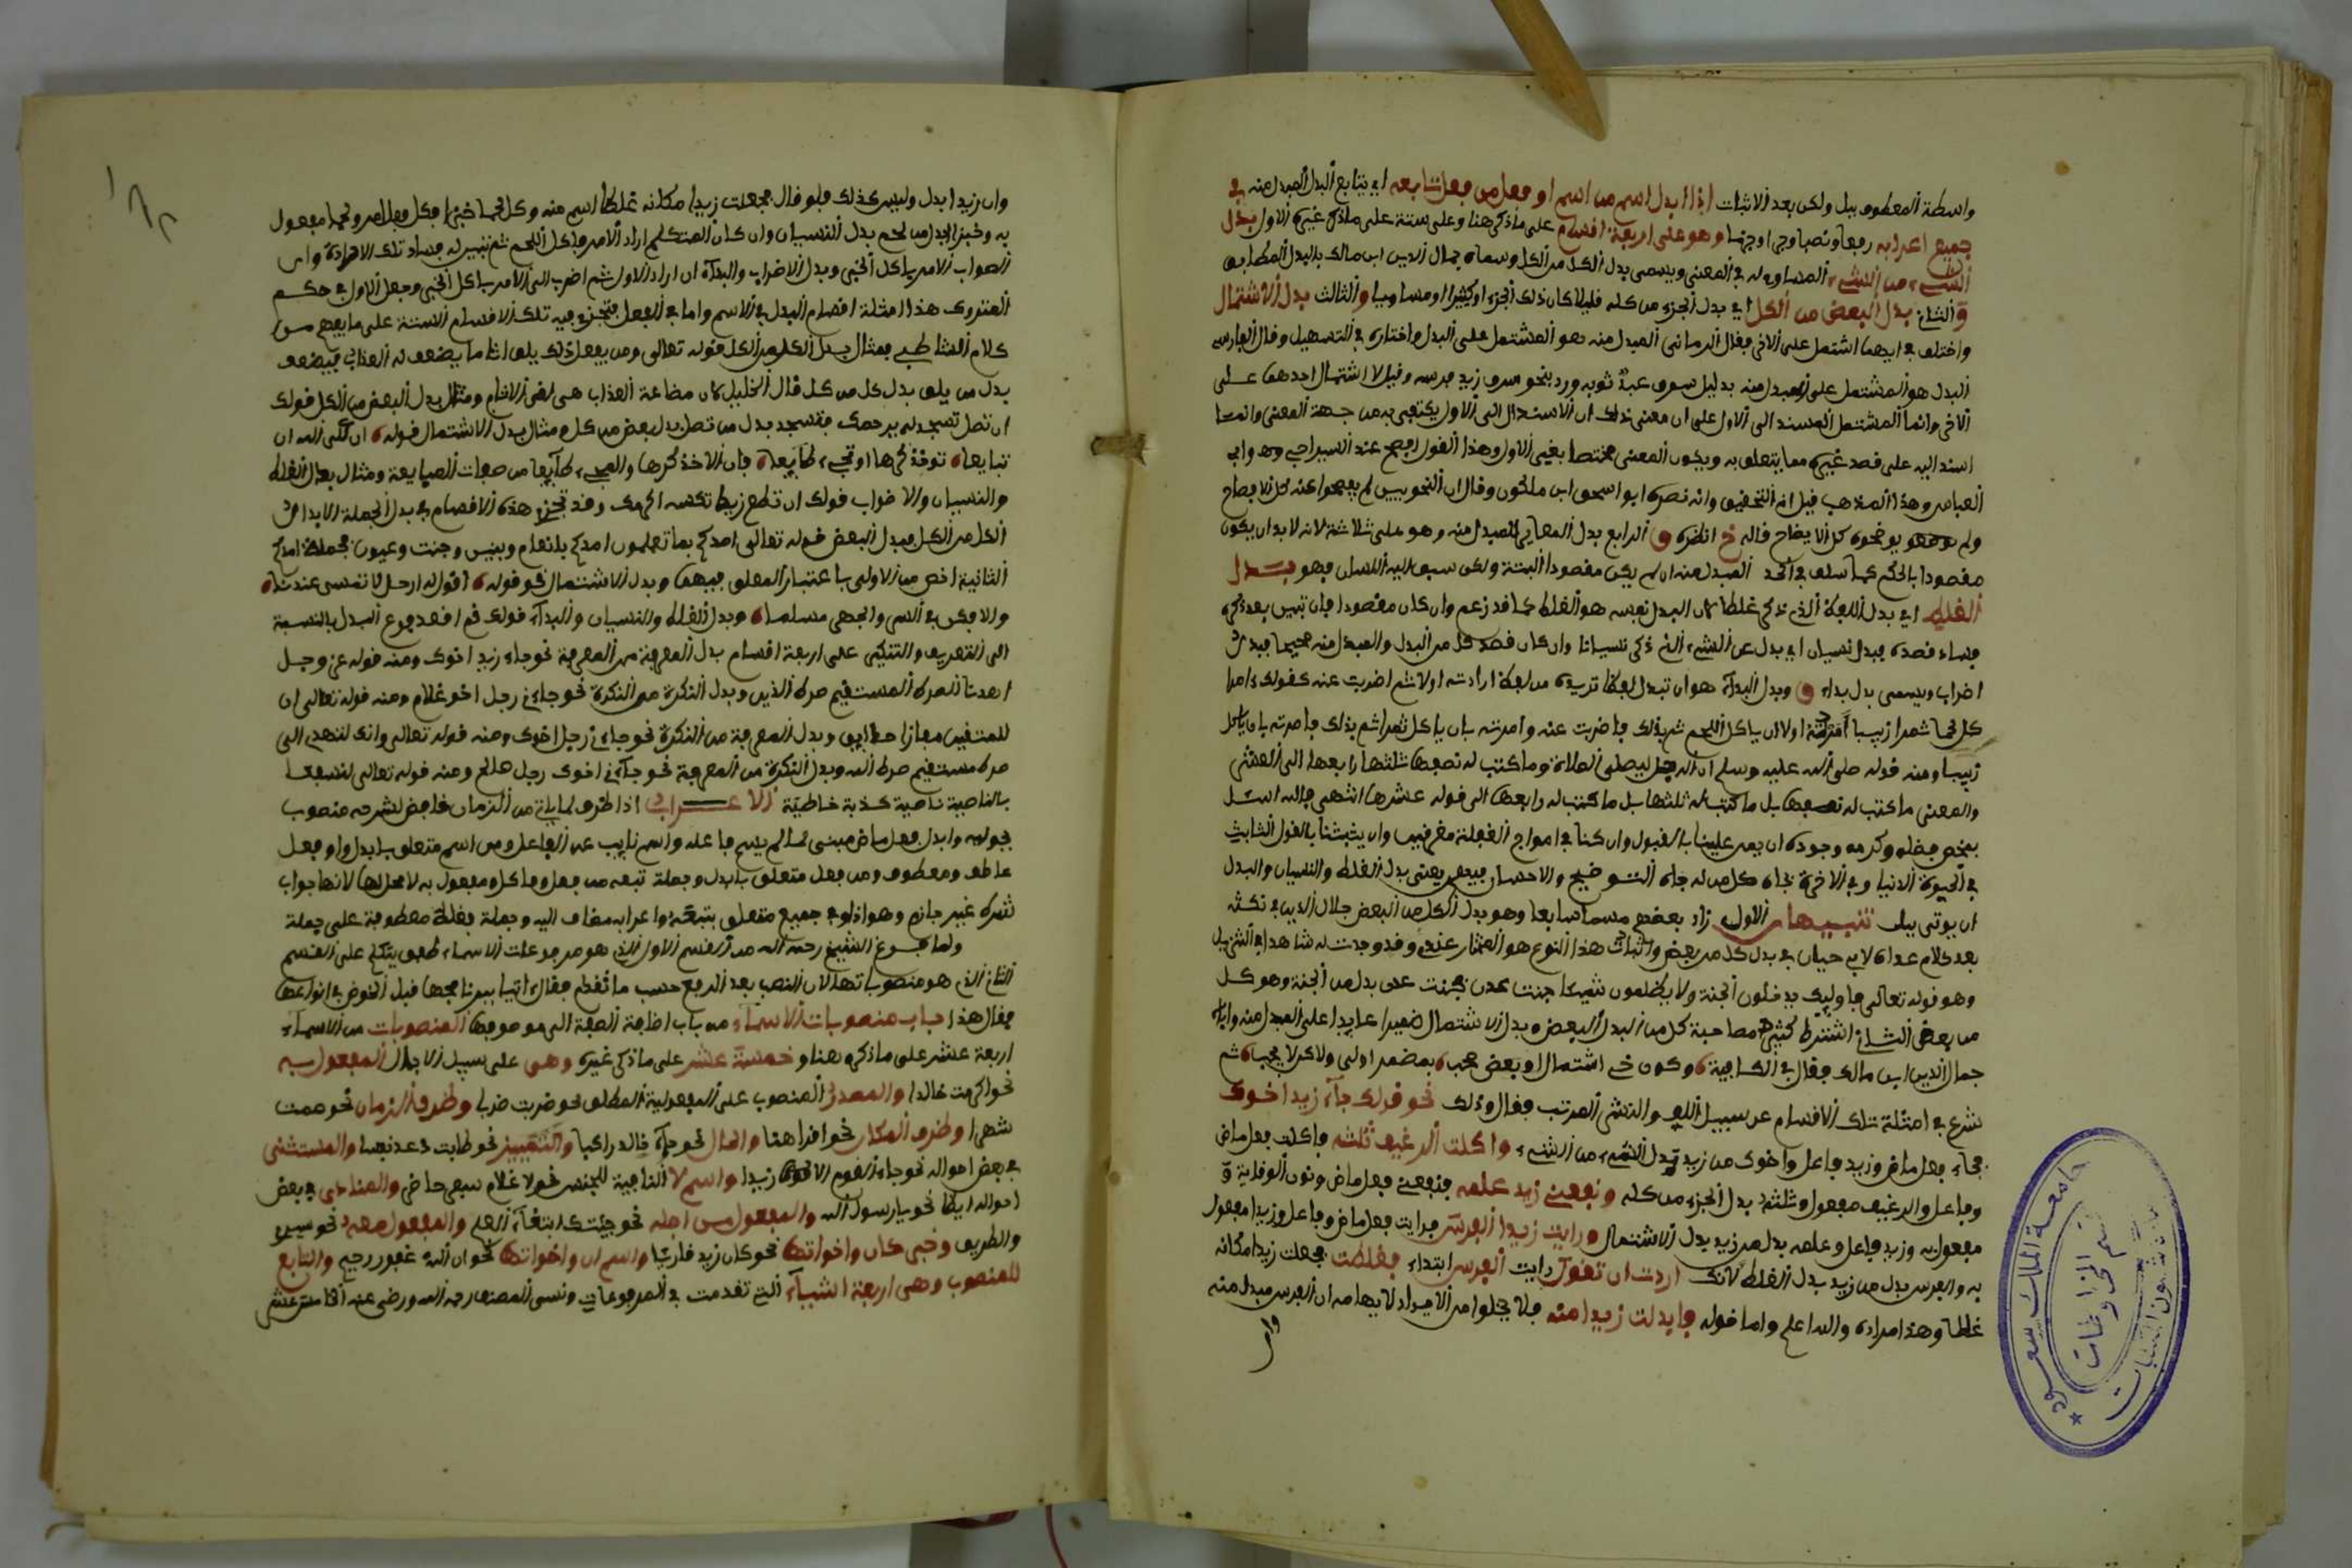 واسطة المعطوف ببل ولكن بعد الاثبات اذا ابدل اسم من اسم او فعل من فعل تابعه اي يتابع البدل المبدل منه في
جميع اعرابه رفعا ونصبا وجرا وجزما وهو على اربعة اقسام على ما ذكر هنا وعلى ستة على ما ذكر غيره الاول بدل
الشيء من الشيء المساوي له في المعنى ويسمى بدل الكل من الكل وسماه جمال الدين ابن مالك بالبدل المطابق
والثاني بدل البعض من الكل اي بدل الجزء من كله قليلا كان ذلك الجزء او كثيرا او مساويا والثالث بدل الاشتمال
واختلف في ايهما اشتمل على الاخر فقال الرماني المبدل منه هو المشتمل على البدل واختاره في التسهيل وقال الفارسي
البدل هو المشتمل على المبدل منه بدليل سرق عبد ثوبه ورد بنحو سرق زيد فرسه وقيل لا اشتمال لاحدهما على
الاخر وانما المشتمل المسند الى الاول على ان معنى ذلك ان الاسناد الى الاول يكتفي به من جهة المعنى وانما
اسند اليه على قصد غيره مما يتعلق به ويكون المعنى مختصا بغير الاول وهذا القول الصحيح عند السيرافي وهو ابي
العباس وهذا المذهب قيل انه التحقيق وانه نصره ابو اسحق ابن ملكون وقال ان النحويين لم يفصحوا عنه كل الافصاح
ولم يوضحوه كل الايضاح قاله خ انظره و الرابع بدل المباين للمبدل منه وهو على ثلاثة لانه لابد ان يكون
مقصودا بالحكم كما سلف في الحد المبدل منه ان لم يكن مقصودا البتة ولكن سبق اليه اللسان فهو بدل
الغلط اي بدل اللفظ الذي ذكر غلطا لان البدل نفسه هو الغلط كما قد زعم وان كان مقصودا فان تبين بعد ذكره
فساد قصده فبدل نسيان اي بدل عن الشيء الذي ذكر نسيانا وان كان قصد كل من البدل والمبدل منه صحيحا فبدل
اضراب ويسمى بدل بداء و وبدل البداء هو ان تبدل لفظا تريده من لفظ ارادته اولا ثم اضربت عنه كقولك امرا
كل لحما تمرا زبيبا امرته اولا ان ياكل اللحم ثم بذلك فاضربت عنه وامرته بان ياكل تمرا ثم بذلك فامرته بان ياكل
زبيبا ومنه قوله صلى الله عليه وسلم ان الرجل ليصلي الصلاة وما كتب له نصفها ثلثها رابعها الى العشر
والمعنى ما كتب له نصفها بل ما كتب له ثلثها بل ما كتب له رابعها الى قوله عشرها انتهى فالله اسئل
بمحض فضله وكرمه وجوده ان يمن علينا بالقبول وان كنا في امواج الغفلة مغرقين وان يثبتنا بالقول الثابت
في الحيوة الدنيا وفي الاخرة بجاه كل من له جاه التوضيح والاحسان فيهم يعني بدل الغلط والنسيان والبدل
ان يوتى ببل تنبيهان الاول زاد بعضهم قسما سابعا وهو بدل الكل من البعض جلال الدين في نكته
بعد كلام عزاه لابي حيان في بدل كل من بعض واثبات هذا النوع هو المختار عندي وقد وجدت له شاهدا في التنزيل
وهو قوله تعالى فاوليك يدخلون الجنة ولا يظلمون شيئا جنت عدن فجنت عدن بدل من الجنة وهو كل
من بعض الثاني اشترط كثير مصاحبة كل من البدل البعض وبدل الاشتمال ضميرا عايدا على المبدل منه واباه
جمال الدين ابن مالك فقال في الكافية وكون ذي اشتمال او بعض صحب بمضمر اولى ولكن لا يجب ثم
شرع في امثلة تلك الاقسام على سبيل اللف والنشر المرتب فقال وذلك نحو قولك جاء زيد اخوك
فجاء فعل ماض وزيد فاعل واخوك من زيد بدل الشيء من الشيء واكلت الرغيف ثلثه فاكلت فعل ماض
وفاعل والرغيف مفعول وثلثه بدل الجزء من كله ونفعني زيد علمه فنفعني فعل ماض ونون الوقاية و
مفعول به وزيد فاعل وعلمه بدل من زيد بدل الاشتمال ورايت زيدا الفرس فرايت فعل ماض وفاعل وزيدا مفعول
به والفرس بدل من زيد بدل الغلط لانك اردت ان تقول رايت الفرس ابتداء فغلطت فجعلت زيدا مكانه
غلطا وهذا مراده والله اعلم واما قوله فابدلت زيدا منه فلا يخلوا من الايراد لايهامه ان الفرس مبدل منه
وان
وان زيدا بدل وليس كذلك فلو قال فجعلت زيدا مكانه غلطا اسلم منه وكل لحما خبزا فكل فعل امر ولحما مفعول
به وخبزا بدل من لحم بدل النسيان وان كان المتكلم اراد الامر باكل اللحم ثم تبين له فساد تلك الارادة وان
الصواب الامر باكل الخبز وبدل الاضراب والبداء ان اراد الاول ثم اضرب الى الامر باكل الخبز وجعل الاول في حكم
المتروك هذا امثلة اقسام البدل في الاسم واما في الفعل فتجري فيه تلك الاقسام الستة على ما يفهم من
كلام الشاطبي فمثال بدل الكل من الكل قوله تعالى ومن يفعل ذلك يلق اثاما يضعف له العذاب فيضعف
بدل من يلق بدل كل من كل قال الخليل لان مضاعفة العذاب هي لقي الاثام ومثال بدل البعض من الكل قولك
ان تصل تسجد لله يرحمك فتسجد بدل من تصل بدل بعض من كل ومثال بدل الاشتمال قوله ان علي الله ان
تبايعا توخذ كرها او تجيء طايعا فان الاخذ كرها والمجيء طايعا من صفات المبايعة ومثال بدل الغلط
والنسيان والاضراب قولك ان تطعم زيدا تكسه اكرمك وقد تجري هذه الاقسام في بدل الجملة الا بدل
الكل من الكل فبدل البعض قوله تعالى امدكم بما تعلمون امدكم بانعام وبنين وجنت وعيون فجملة امدكم
الثانية اخص من الاولى باعتبار المعلق فيهما وبدل الاشتمال نحو قوله اقول له ارحل لا تقيمن عندنا
والا فكن في السر والجهر مسلما وبدل الغلط والنسيان والبداء قولك قم اقعد ويرجع البدل بالنسبة
الى التعريف والتنكير على اربعة اقسام بدل المعرفة من المعرفة نحو جاء زيد اخوك ومنه قوله عز وجل
اهدنا الصرط المستقيم صرط الذين وبدل النكرة من النكرة نحو جاءني رجل اخو غلام ومنه قوله تعالى ان
للمتقين مفازا حدايق وبدل المعرفة من النكرة نحو جاءني رجل اخوك ومنه قوله تعالى وانك لتهدي الى
صرط مستقيم صرط الله وبدل النكرة من المعرفة نحو جاءني اخوك رجل صالح ومنه قوله تعالى لنسفعا
بالناصية ناصية كذبة خاطية الاعراب اذا ظرف لما ياتي من الزمان خافض لشرطه منصوب
بجوابه وابدل فعل ماض مبني لما لم يسم فاعله واسم نايب عن الفاعل ومن اسم متعلق بابدل واو فعل
عاطف ومعطوف ومن فعل متعلق بابدل وجملة تبعه من فعل وفاعل ومفعول به لا محل لها لانها جواب
شرط غير جازم وهو اذا وفي جميع متعلق بتبعه واعرابه مضاف اليه وجملة فغلط معطوفة على جملة
ولما فرغ الشيخ رحمه الله من القسم الاول الذي هو مرفوعات الاسماء طفق يتكلم على القسم
الثاني الذي هو منصوباتها لان النصب بعد الرفع حسب ما تقدم فقال اتيا ببرنامجها قبل الخوض في انواعها
فقال هذا باب منصوبات الاسماء من باب اضافة الصفة الى موصوفها المنصوبات من الاسماء
اربعة عشر على ما ذكره هنا وخمسة عشر على ما ذكر غيره وهي على سبيل الاجمال المفعول به
نحو اكرمت خالدا والمصدر المنصوب على المفعولية المطلق نحو ضربت ضربا وظرف الزمان نحو صمت
شهرا وظرف المكان نحو اقرا هنا والحال نحو جاء خالد راكبا والتمييز نحو طابت دعد نفسا والمستثنى
في بعض احواله نحو جاء القوم الا زيدا واسم لا النافية للجنس نحو لا غلام سفر حاضر والمنادى في بعض
احواله ايضا نحو يا رسول الله والمفعول من اجله نحو جيتك ابتغاء العلم والمفعول معه نحو سرت
والطريق وخبر كان واخواتها نحو كان زيد قايما واسم ان واخواتها نحو ان الله غفور رحيم والتابع
للمنصوب وهي اربعة اشياء التي تقدمت في المرفوعات ونسى المصنف رحمه الله ورضي عنه الخامس عشر
جامعة الملك سعود
قسم المخطوطات
عمادة شؤون المكتبات